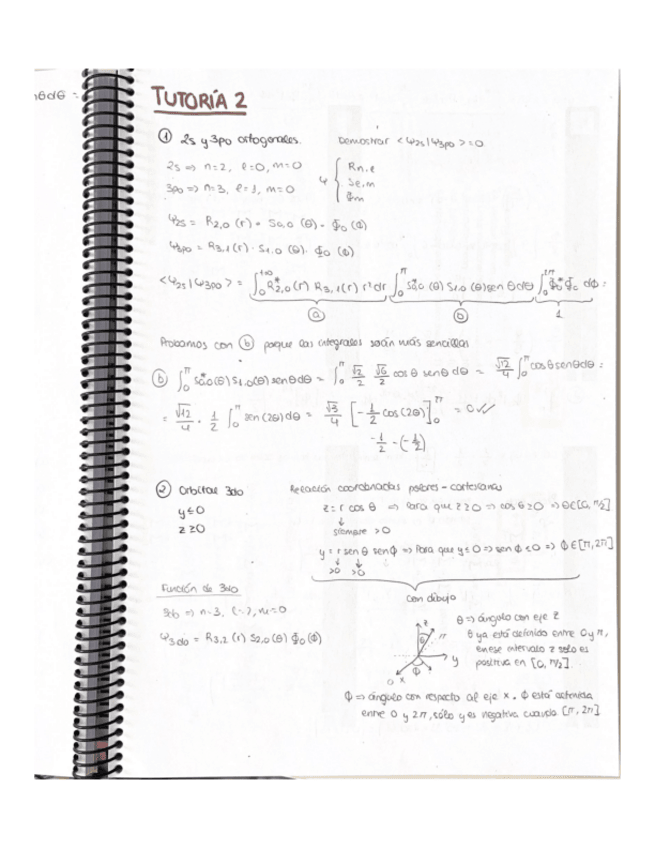 θdθ =
TUTORÍA 2
① 2s y 3p0 ortogonales. Demostrar <Ψ2s|Ψ3p0> = 0
2s => n=2, l=0, m=0
3p0 => n=3, l=1, m=0
Ψ { Rn,l
Sl,m
Φm
Ψ2s = R2,0 (r) · S0,0 (θ) · Φ0 (Φ)
Ψ3p0 = R3,1 (r) · S1,0 (θ) · Φ0 (Φ)
<Ψ2s|Ψ3p0> = ∫₀^{+∞} R*2,0 (r) R3,1 (r) r² dr ∫₀^π S*0,0 (θ) S1,0 (θ) sen θ dθ ∫₀^{2π} Φ*0 Φ0 dΦ =
ⓐ ⓑ 1
Probamos con ⓑ porque las integrales serán más sencillas
ⓑ ∫₀^π S*0,0 (θ) S1,0 (θ) sen θ dθ = ∫₀^π √2/2 √6/2 cos θ sen θ dθ = √12/4 ∫₀^π cos θ sen θ dθ =
= √12/4 · 1/2 ∫₀^π sen (2θ) dθ = √3/4 [-1/2 cos (2θ)]₀^π = 0 ✓✓
-1/2 - (-1/2)
② Orbital 3d0 Relación coordenadas polares - cartesianas
y ≤ 0
z ≥ 0
z = r cos θ => Para que z ≥ 0 => cos θ ≥ 0 => θ ∈ [0, π/2]
↓
siempre > 0
y = r sen θ sen Φ => Para que y ≤ 0 => sen Φ ≤ 0 => Φ ∈ [π, 2π]
↓ ↓
>0 >0
con dibujo
Función de 3d0
=> n=3, l=2, m=0
Ψ3d0 = R3,2 (r) S2,0 (θ) Φ0 (Φ)
z
θ
r
y
Φ
x
θ => ángulo con eje z
θ ya está definido entre 0 y π,
en ese intervalo z sólo es
positiva en [0, π/2].
Φ => ángulo con respecto al eje x. Φ está definida
entre 0 y 2π, sólo y es negativa cuando [π, 2π]